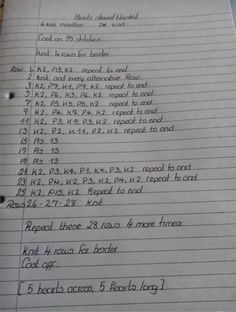 Hearts abound blanket
4 mm needles DK wool
Cast on 95 stitches
Knit 4 rows for border
Row 1 K2, P15, K2 repeat to end
2 Knit and every alternative Row
3 K2, P7, K1, P7, K2 repeat to end.
5 K2, P6, K3, P6, K2 repeat to end
7 K2, P5, K5, P5, K2 repeat to end
9 K2, P4, K7, P4, K2 repeat to end
11 K2, P3, K9, P3, K2 repeat to end
13 K2, P2, K11, P2, K2 repeat to end
15 As 13
17 As 13
19 As 13
21 K2, P3, K4, P1, K4, P3, K2 repeat to end
23 K2, P4, K2, P3, K2, P4, K2 repeat to end
25 K2, P15, K2 Repeat to end
Rows 26-27-28 Knit
Repeat these 28 rows 4 more times
Knit 4 rows for border
Cast off.
[5 hearts across, 5 hearts long]